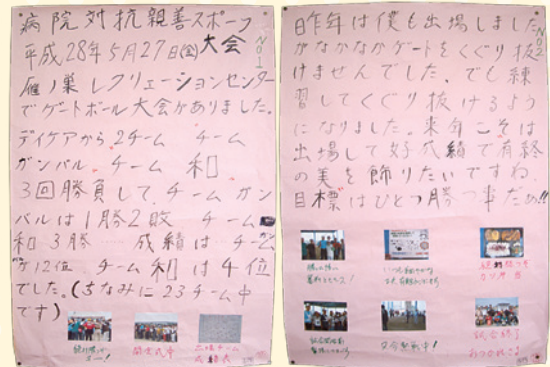 病院対抗親善スポーツ
大会
NO1
平成28年5月27日(金)
雁ノ巣レクリェーションセンター
でゲートボール大会がありました。
デイケアから2チーム チーム
ガンバル、チーム 和
3回勝負して、チームガン
バルは1勝2敗 チーム
和 3勝 成績は チームガン
バル12位 チーム和は4位
でした。(ちなみに23チーム中
です)
開会式中
出場チーム
成績表
NO2
昨年は僕も出場しました
がなかなかゲートをくぐり抜
けませんでした。でも練
習してくぐり抜けるよう
になりました。来年こそは
出場して好成績で有終
の美を飾りたいですね。
目標はひとつ勝つ事だぁ!!
只今熱戦中!
試合終了